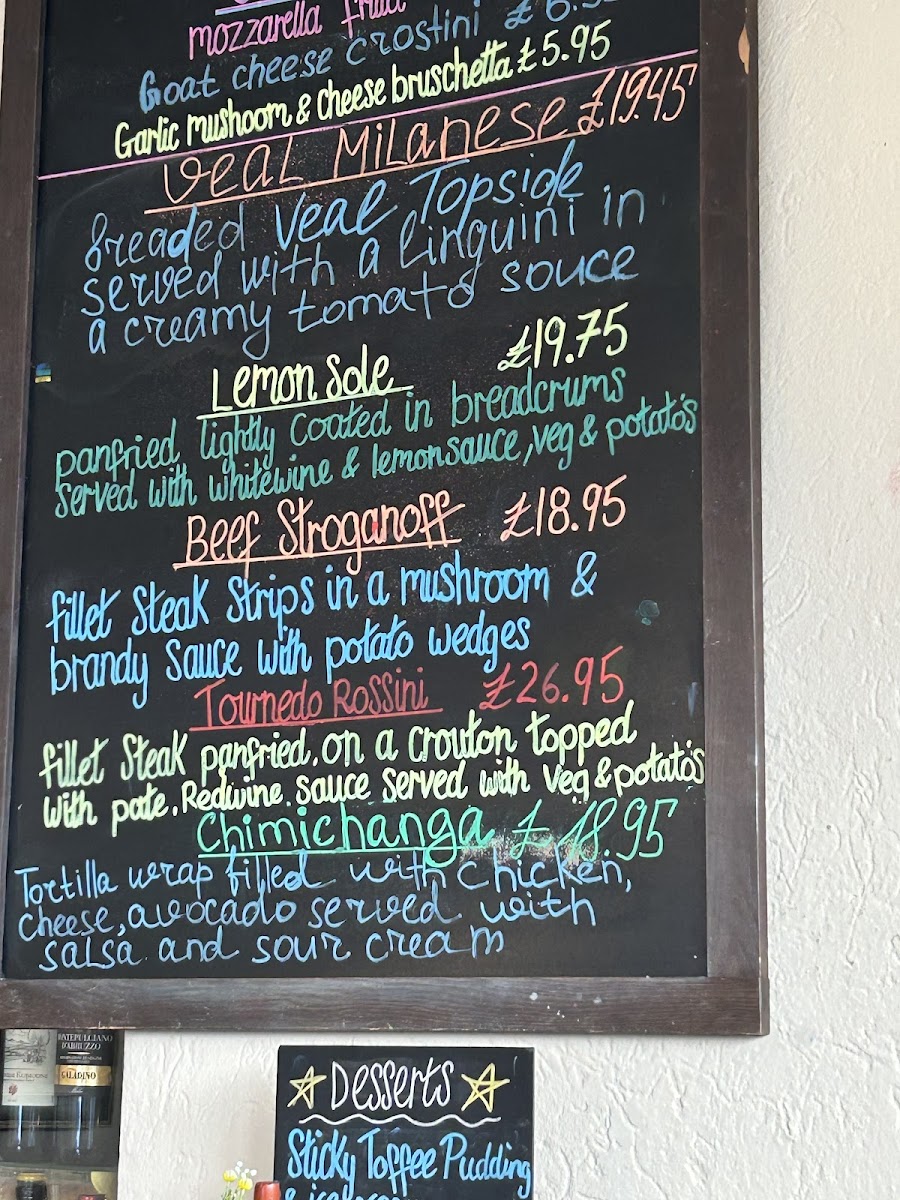 mozzarella fritta
Goat cheese crostini £6.95
Garlic mushoom & cheese bruschetta £5.95
Veal Milanese £19.45
breaded Veal Topside
served with a linguini in
a creamy tomato souce
Lemon Sole £19.75
panfried lightly coated in breadcrums
served with whitewine & lemonsauce, veg & potato's
Beef Stroganoff £18.95
fillet Steak Strips in a mushroom &
brandy Sauce with potato wedges
Tournedo Rossini £26.95
fillet Steak panfried. on a Crouton topped
with pate. Redwine. sauce Served with veg & potato's
Chimichanga £18.95
Tortilla wrap filled with chicken,
cheese, avocado served with
salsa and sour cream
MONTEPULCIANO
D'ABRUZZO
Desserts
Sticky Toffee Pudding